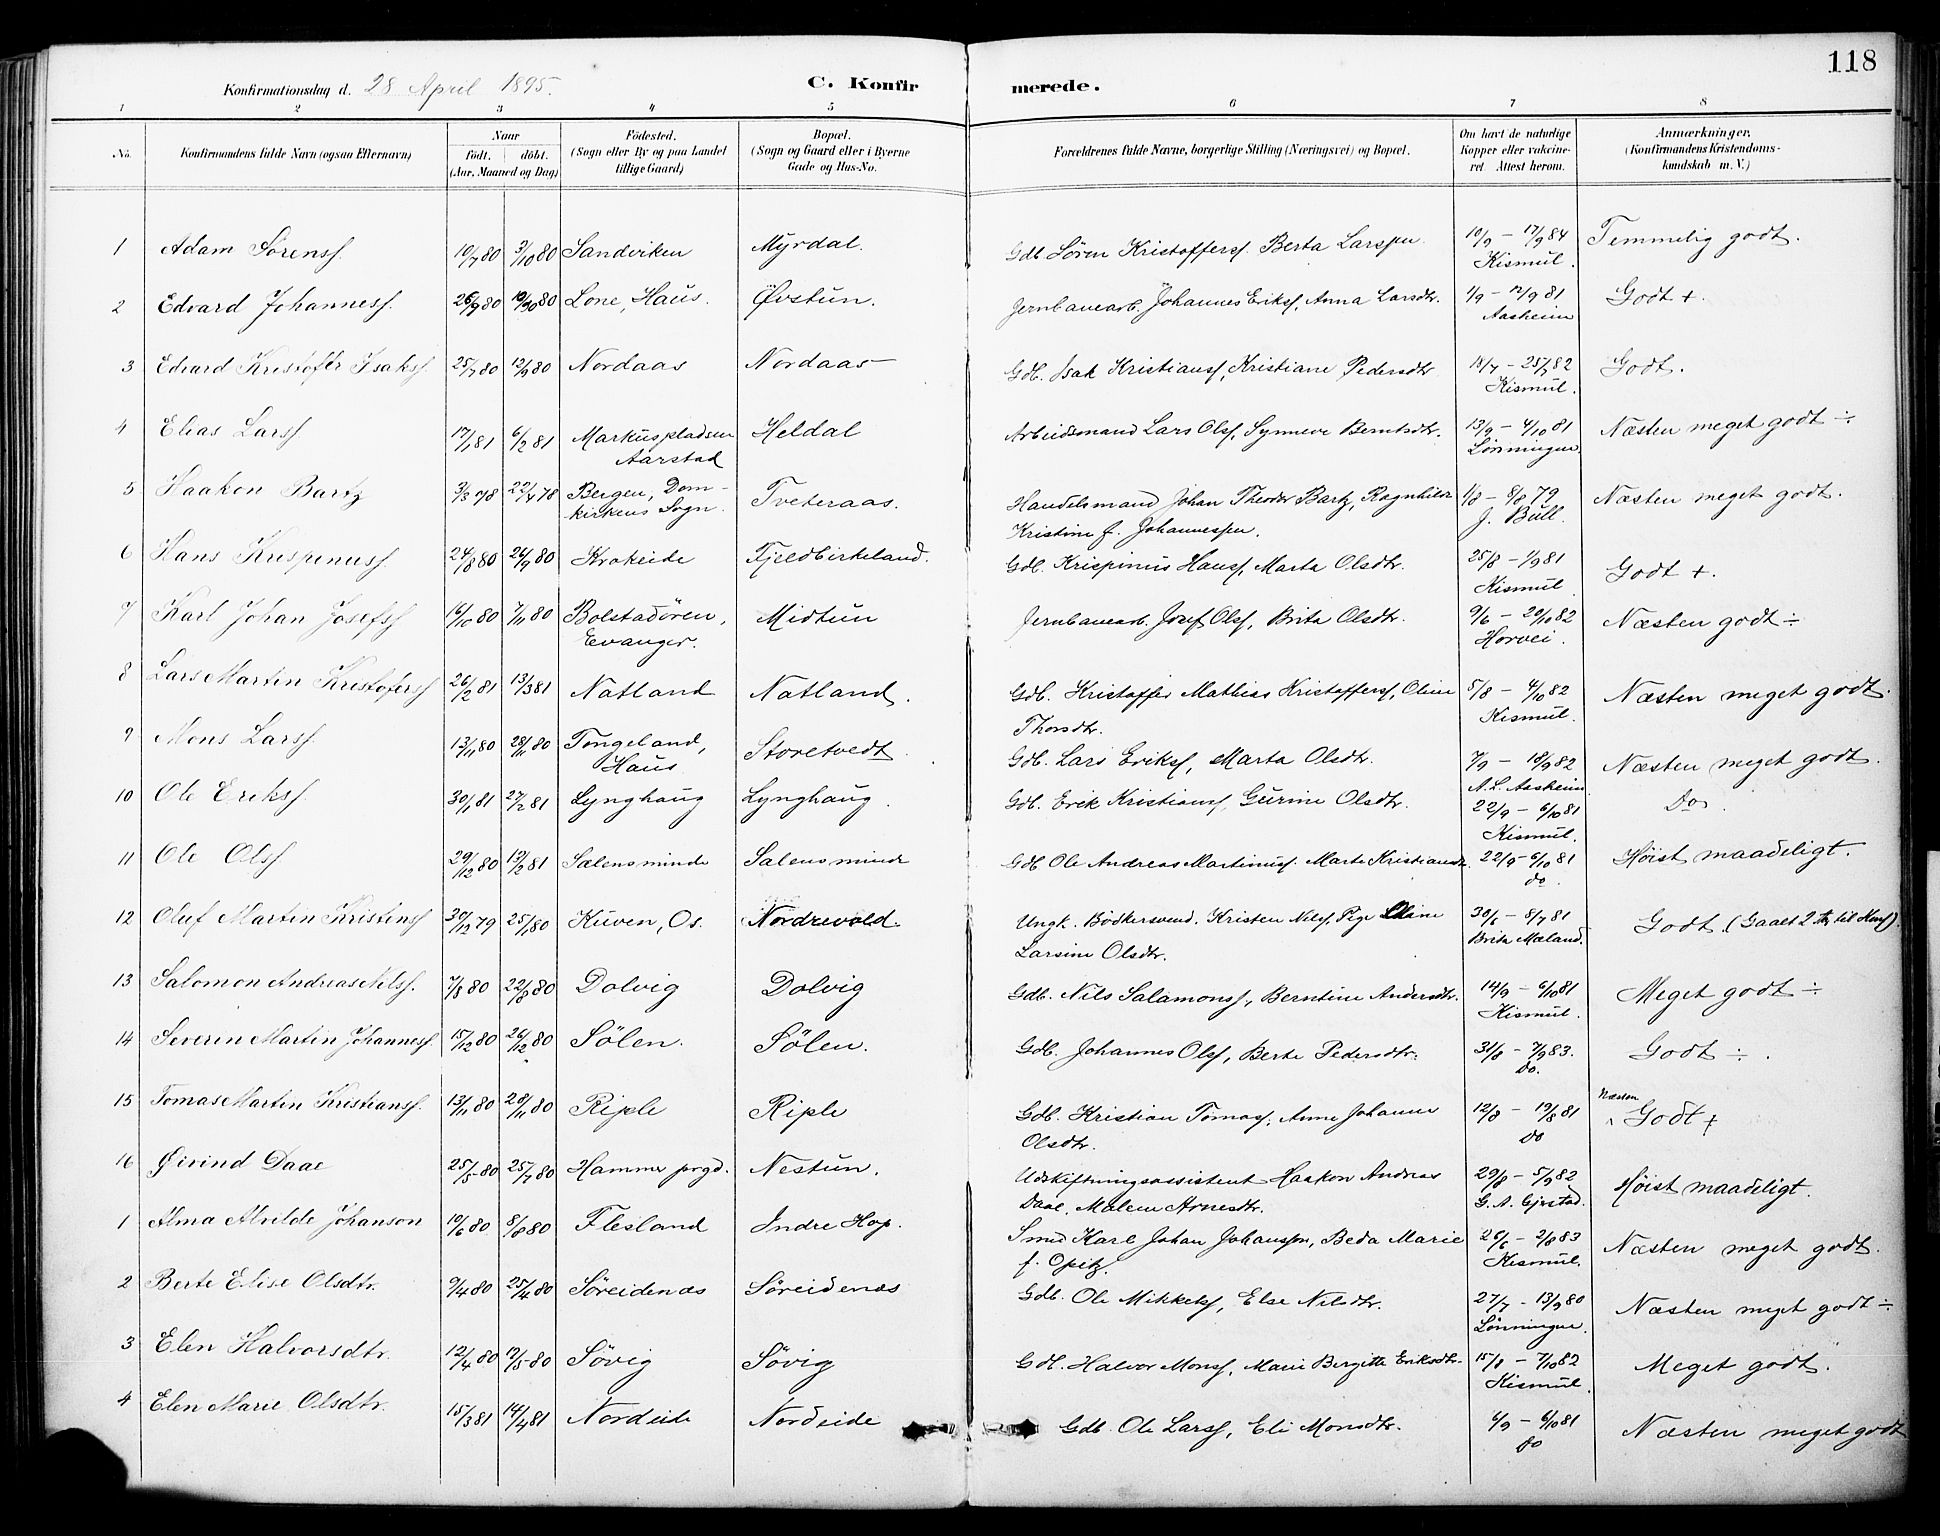 118
Konfirmationsdag d. 28 April 1895. C. Konfirmerede.
1 2 3 4 5 6 7 8
No. Konfirmandens fulde Navn (ogsaa Efternavn) Naar født. døbt. (Aar, Maaned og Dag) Fødested. (Sogn eller By og paa Landet tillige Gaard) Bopæl. (Sogn og Gaard eller i Byerne Gade og Hus-No. Forældrenes fulde Navne, borgerlige Stilling (Næringsvei) og Bopæl. Om havt de naturlige Kopper eller vakcineret. Attest herom. Anmærkninger. (Konfirmandens Kristendomskundskab m. V.)
1 Adam Sørenss. 10/7 80 3/10 80 Sandviken Myrdal. Gdb Søren Kristofferss. Berta Larsen 10/9 – 17/9 84 Kismul. Temmelig godt.
2 Edvard Johanness. 26/9 80 10/10 80 Lone, Haus. Øvstun. Jernbanearb. Johannes Erikss, Anna Larsdtr. 1/9 – 12/9 81 Aasheim Godt +.
3 Edvard Kristofer Isakss. 25/7 80 12/9 80 Nordaas Nordaas Gdb. Isak Kristianss, Kristiane Pedersdtr 18/7 – 25/7 82 Kismul. Godt.
4 Elias Larss 17/1 81 6/2 81 Markuspladsen Aarstad Heldal Arbeidsmand Lars Olss, Synneve Berntsdtr. 13/9 – 4/10 81 Lønningen Næsten meget godt ÷
5 Haaken Bartz 3/3 78 22/4 78 Bergen, Domkirkens Sogn. Tveteraas. Handelsmand Johan Theodor Bartz, Ragnhilde Kristine f. Johannessen. 1/8 – 8/8 79 J. Bull. Næsten meget godt.
6 Hans Krispinuss. 24/8 80 26/9 80 Krokeide Fjeldbirkeland. Gdb. Krispinus Hanss, Marta Olsdtr. 25/8 – 1/9 81 Kismul Godt +.
7 Karl Johan Josefss 16/10 80 7/11 80 Bolstadøren, Evanger. Midtun Jernbanearb. Josef Olss, Brita Olsdtr. 9/6 – 20/10 82 Horvei. Næsten godt ÷
8 Lars Martin Kristoferss 26/2 81 13/3 81 Natland Natland. Gdb. Kristoffer Mathias Kristofferss, Oline Thorsdtr. 5/8 – 4/10 82 Kismul. Næsten meget godt.
9 Mons Larss. 13/11 80 28/11 80 Tongeland, Haus Storetvedt Gdb. Lars Erikss, Marta Olsdtr. 7/9 – 18/9 82 A. L. Aasheim Næsten meget godt.
10 Ole Erikss. 30/1 81 27/2 81 Lynghaug Lynghaug. Gdb. Erik Kristianss, Gurine Olsdtr. 22/9 – 6/10 81 Kismul. Do.
11 Ole Olss 29/12 80 13/2 81 Sælensminde Salensminde Gdb Ole Andreas Martinuss. Marte Kristiansdtr 22/9 – 6/10 81 do. Høist maadeligt.
12 Oluf Martin Kristenss 30/12 79 25/1 80 Kuven, Os. Nordrevold. Ungk. Bødkersvend. Kristen Nilss, Pige Oline Larsine Olsdtr. 30/6 – 8/7 81 Brita Mæland. Godt. (Gaaet 2 Aar til Konf).
13 Salomon Andreas Nilss. 7/8 80 22/8 80 Dolvig Dolvig Gdb. Nils Salamonss, Berntine Andersdtr. 14/9 – 6/10 81 Kismul. Meget godt ÷
14 Severin Martin Johanness. 15/12 80 26/12 80 Sølen. Sølen. Gdb. Johannes Olss, Berte Pedersdtr. 31/8 – 7/9 83. Do. Godt ÷.
15 Tomas Martin Kristianss. 13/11 80 28/11 80 Riple Riple Gdb. Kristian Tomass, Anne Johanne Olsdtr. 12/8 – 19/8 81 Do Næsten Godt +
16 Øivind Daae 25/5 80 25/7 80 Hammer prgd. Nestun. Udskiftningsassistent Haakon Andreas Daae, Malene Arnesdtr. 29/8 – 5/9 82 G. A. Gjestad. Høist maadeligt.
1 Alma Alvilde Johanson 10/6 80 8/8 80 Flesland Indre Hop. Smed Karl Johan Johanssen, Beda Marie f. Opitz. 26/6 – 2/8 83 Kismul. Næsten meget godt.
2 Berte Elise Olsdtr. 9/4 80 25/4 80 Søreidenæs Søreidenæs Gdb. Ole Mikkelss, Else Nilsdtr. 27/7 – 13/9 80 Lønningen. Næsten meget godt ÷
3 Elen Halvorsdtr. 12/4 80 17/5 80 Søvig Søvig Gdb. Halvor Monss, Marie Bergitte Eriksdtr. 15/8 – 7/10 82 Kismul. Meget godt.
4 Elen Marie Olsdtr. 15/3 81 14/4 81 Nordeide Nordeide Gdb. Ole Larss, Eli Monsdtr. 6/9 – 6/10 81 do Næsten meget godt